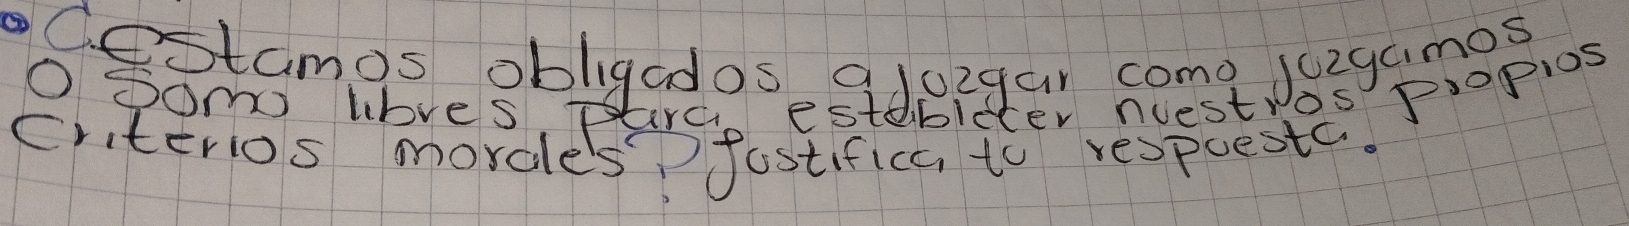 ¿estamos obligados a juzgar como juzgamos
o somo libres para establecer nuestros propios
criterios morales? Justifica tu respuesta.